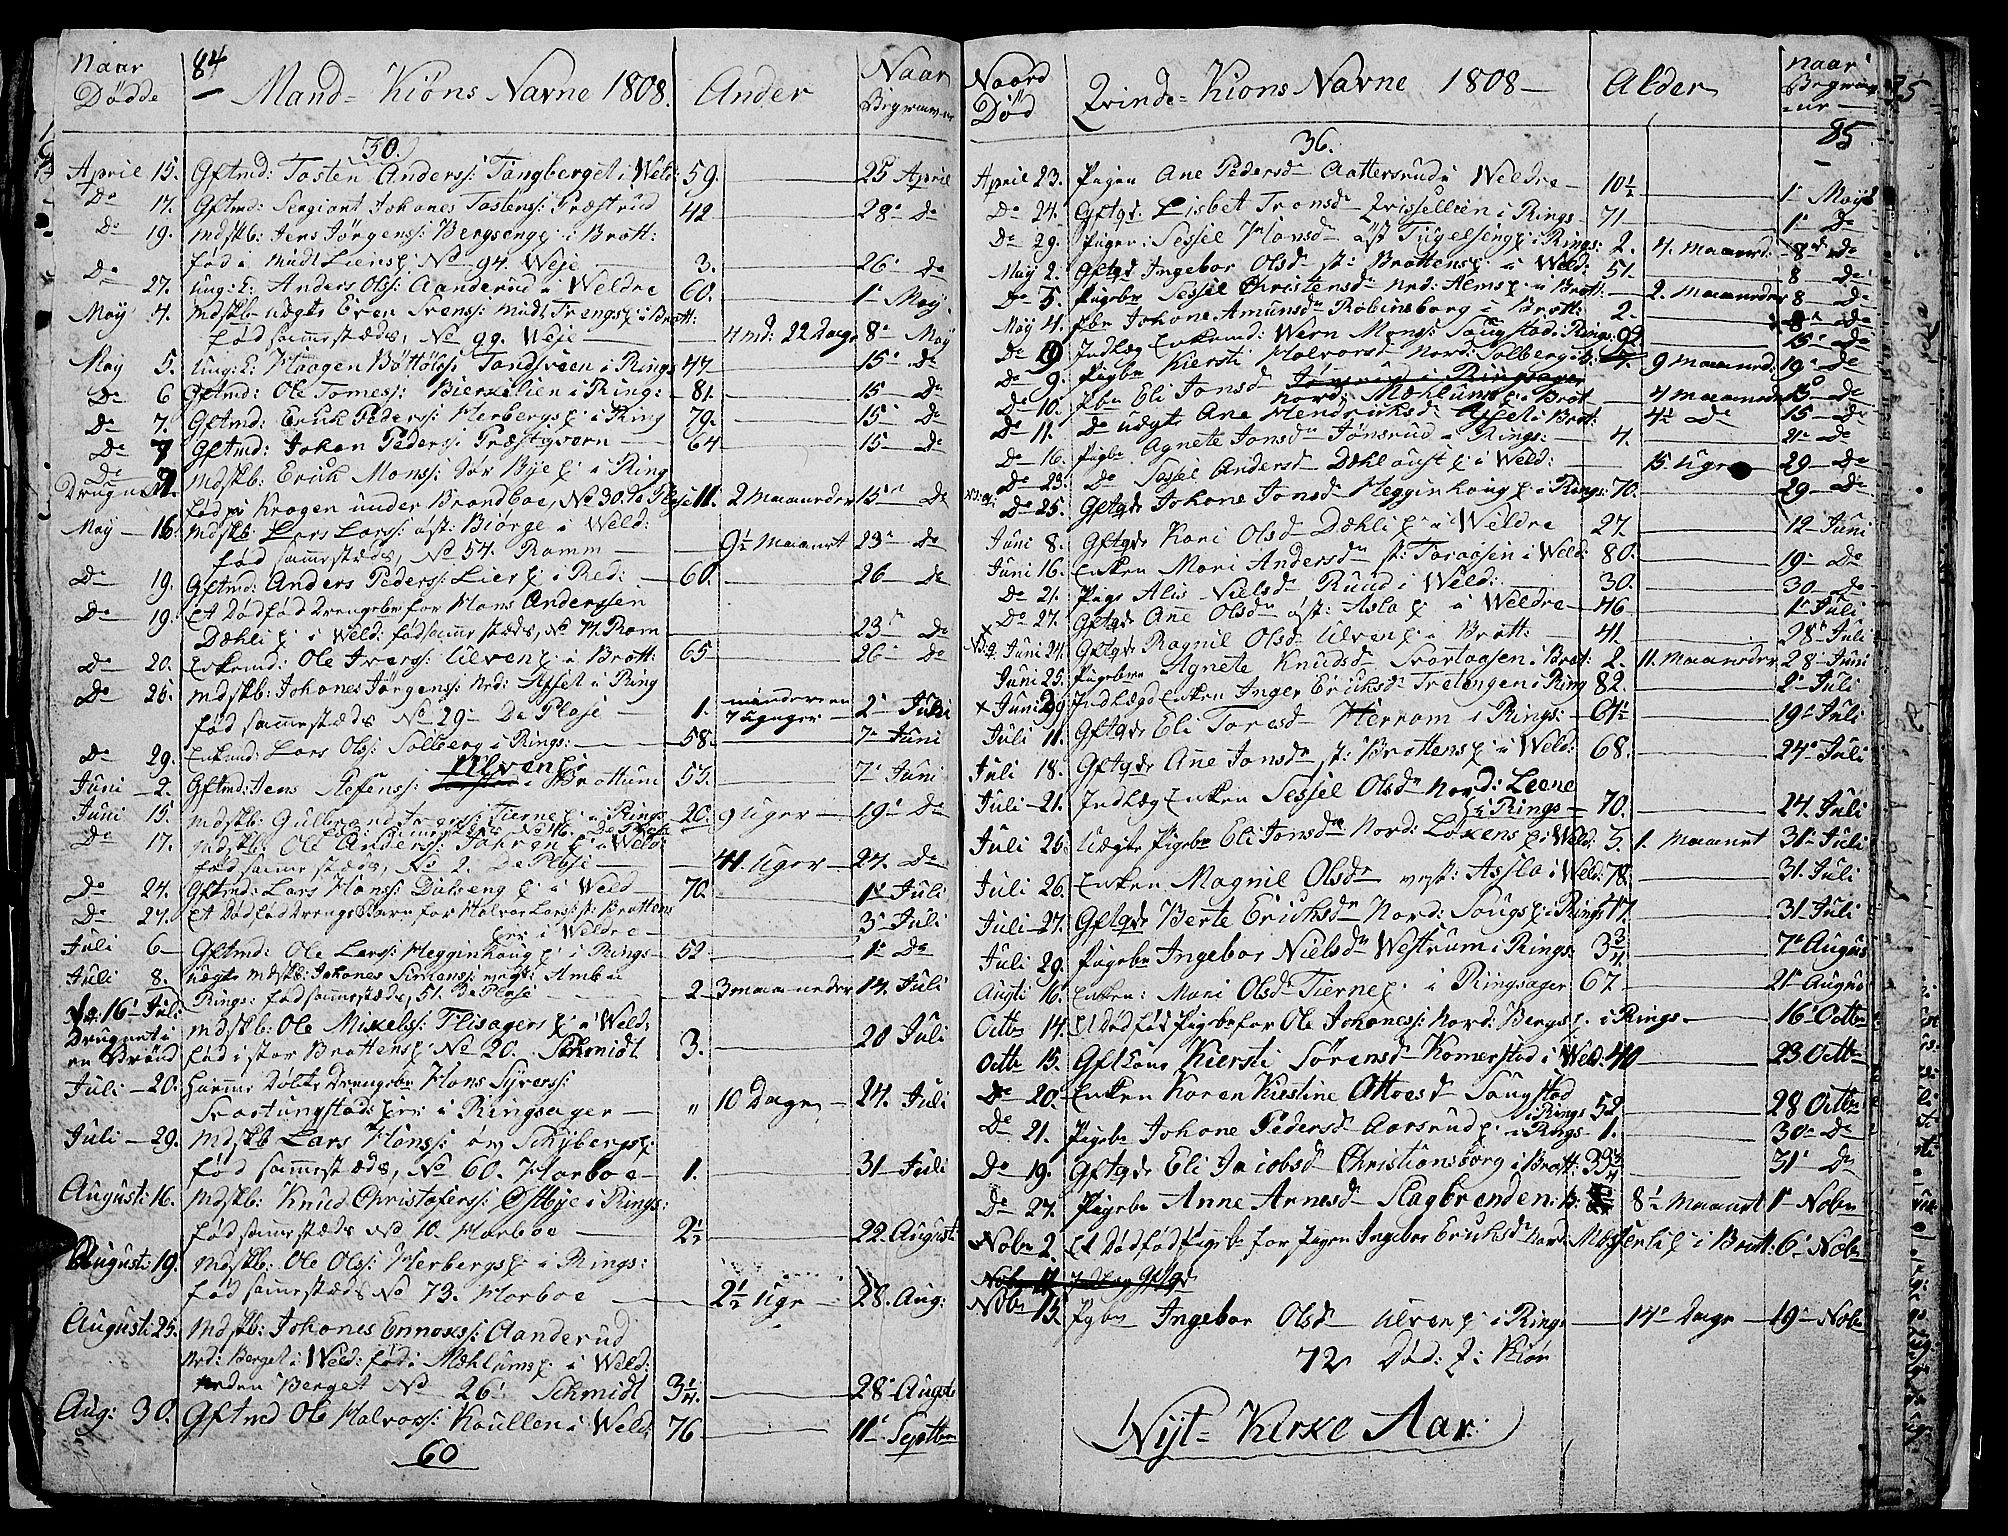 84
Naar Dødde
Mand-Kiøns Navne 1808.
Ander
Naar Begraven
30.
April 15. Gftmd: Tosten Anders: Tangberget i Weld: 59. 25 April
De 17. Gftmd: Sergiant Johanes Tostens: Præstrud 42 28 De
De 19. Mdskb: Jens Jørgens: Bergseng i Brott:
fød i Midl Liens No 94. Weje 3. 26 De
De 27. ung: E: Anders Ols: Aanderud i Weldre 60. 1 May
May 4. Mdskb uægte Even Svens: Midl Trengs i Brott:
fød sammestæds, No 99. Weje 4 md: 22 Dage 8 May
May 5. Ung: E: Haagen Bøttols: Tandsveen i Ring: 47 15 De
De 6 Gftmd: Ole Tomes: Bierkelien i Ring: 81. 15 De
De 7. Gftmd: Erick Peders: Herbergs i Ring 79. 15 De
De 7 Gftmd: Johan Peders: Præstqvern 64 15 De
De 7. Mdskb: Erick Mons: Sør Bye i Ring
Drugnet fød i Krogen under Brandboe, No 30. De Plase 11. 2 Maaneder 15 De
May 16. Mdskb: Lars Lars: øst: Biørge i Weld:
fød sammestæds, No 54. Ramm 9½ Maanet 23 De
De 19. Gftmd: Anders Peders: Lier i Red: 60. 26 De
De 19. Et Dødfød Drengebn for Hans Anderssen
Dæhli i Weld: fød samme stæds, No 71. Ram 23 De
De 20. Enkemd: Ole Ivers: Ulven i Brott: 65 26 De
De 26. Mdskb: Johanes Jørgens: Nrd: Assel i Ring
fød sammestæds No 29 De Plase 1. mindere en 7 Uger 2 Juni
De 29. Enkmd: Lars Ols: Solberg i Rings: 58. 7 Juni
Juni 2. Gftmd: Jens Stefens: Ulven i Brottum 53. 7 Juni
Juni 15. Mdskb: Gulbrand Ivers: Tierne i Rings 20. 9 Uger 19 De
De 17. Mdskb: Ole Anders: i Weld:
fød sammestæds, No 2. De Plase 41 Uger 24. De
De 24. Gftmd: Lars Hans: Dalseng i Weld 70. 1 Juli
De 27. Et Dødfød Drengebarn for Halvor Lars: st: Brottens
i Weldre 3 Juli
Juli 6 Gftmd: Ole Lars: Hegginhoug i Rings 52 1 De
Juli 8. uægte Mdskb: Johanes Simens: vest: Amb i
Rings: fød sammestæds, 51. De Plase 2 3 maaneder 14. Juli
No: 16 Juli Mdskb: Ole Mikels: Flisagers i Weld:
Drugnet i en Brønd fød i stor Brottens No 20. Schmidt 3. 20 Juli
Juli 20. Hiemme Døbte Drengebn Hans Syvers:
Svartungstad i Ringsager " 10 Dage 24. Juli
Juli 29. Mdskb Lars Hans: øv Schybergs
fød sammestæds, No 60. Harboe 1. 31 Juli
Augusti 16. Mdskb: Knud Christofers: Østbye i Rings:
fød sammestæds No 10. Harboe 2½ 22 August
Augusti 19. Mdskb: Ole Ols: Herbergs i Rings:
fød sammestæds No 73. Harboe 2½ Uge 28. Aug:
Augusti 25. Mdskb: Johanes Ennoks: Aanderud
Nrd: Berget i Weld: fød i Mæhlums i Weld:
Berget No 26. Schmidt 3¼ 28 August
Aug: 30. Gftmd Ole Halvors: Koullen i Weld: 76 11 Septbr
60
Naard Død
Qvinde-Kiøns Navne 1808
Alder
Naar Begraven
85
36.
April 23. Pigen Ane Pedersd Aattersrud i Weldre 10½ 1 May
De 24. Gftqd: Lisbet Tronsd Qvissellien i Rings 71 1 De
De 29. Piger: Sessel Hansd øst Tugelseng i Rings: 2. 4. Maaned: 8 De
May 2. Gftqd Ingebor Olsd st: Brottens i Weld: 51. 8 De
De 5. Pigebn Sessel Christensd Nrd: Alms i Brott: 2. Maaneder 8 De
May 4. Pbn Johane Amunsd Robinsborg i Brott: 2. 8 De
De 9 Indlæg Enkemd: Wern Mons: Sougstad: Rings: 15 De
De 9. Pigbn Kiersti Halvorsd Nord: Solberg 9 Maaned: 19 De
De 10. Pbn Eli Jonsd Nord: Mæhlums i Brot 4 Maaneder De
De 11. De uægt Ane Hendriksd Assel i Brot: 4½ De 15 De
De 16. Pigbn Agnete Jonsd Jønsrud i Rings: 4. 21 De
De 23. De Sessel Andersd Dæhl oust i Weld: 15 Uger 29 De
De 25. Gftqd Johane Jonsd Hegginhoug i Rings: 70. 29 De
Juni 8. Gftqd Kari Olsd Dæhli i Weldre 27. 12 Juni
Juni 16. Enken Mari Andersd st: Toraasen i Weld: 80. 19 De
De 21. Pige Alis Nielsd Ruud i Weld: 30. 30 De
De 27. Gftqd Ane Olsd øst: Asla i Weldre 46 1 Juli
Juni 24. Gftqd Ragnil Olsd Ulven i Brott: 41. 28 Juli
Juni 25. Pigebn Agnete Knudsd Svartaasen i Brot: 2. 11. Maaneder 28 Juni
Juni 29 Indlægd Enken Inger Eriksd Tretengen i Ring 82. 2 Juli
Juli 11. Gftqd Eli Toresd Herram i Rings: 61½ 19 Juli
Juli 18. Gftqd Ane Jonsd st: Brottens i Weld: 68. 24 Juli
Juli 21. Indlæg Enken Sessel Olsd Nord: Leene
i Rings 70. 24 Juli
Juli 26. Uægte Pigebn Eli Jonsd Nord: Loxens i Weld: 3. 1. Maanet 31 Juli
Juli 26. Enken Magnil Olsd vest: Assla i Weld: 78. 31 Juli
Juli 27. Gftqd Berte Eriksd Nord: Sougs i Rings 47. 31 Juli
Juli 29. Pigebn Ingebor Nielsd Westrum i Rings: 3¾ 7 August
Augti 16. Enken: Mari Olsd Tierne i Ringsager 67 21 August
Octbr 14. Et Dødfød Pigebn for Ole Johaness: Nord: Bergs i Rings 16 Octbr
Octbr 15. Gft Kone Kiersti Sørensd Komerstad i Weld: 40 23 Octbr
De 20. Enken Karen Kiestine Ottoesd Sougstad
i Rings 52 28 Octbr
De 21. Pigebn Johane Pedersd Aarsrud i Rings 1. 30 De
De 19. Gftqd Eli Jacobsd Christiansborg i Brott: 39¾ 31 De
De 27. Pigebn Anne Arnesd Slagbrenden: 8½ Maanet 1 Nobr
Nobr 2. Et Dødfød Pigebn for Pigen Ingebor Eriksd Nord: i Brott: 6 Nobr
Nobr 11 Indlæg Gftqd
Nobr 15. Pgbn Ingebor Olsd Ulven i Rings 14 Dage 19 Nobr
72 Død: Q: Kiøn
Nyt Kirke Aar: